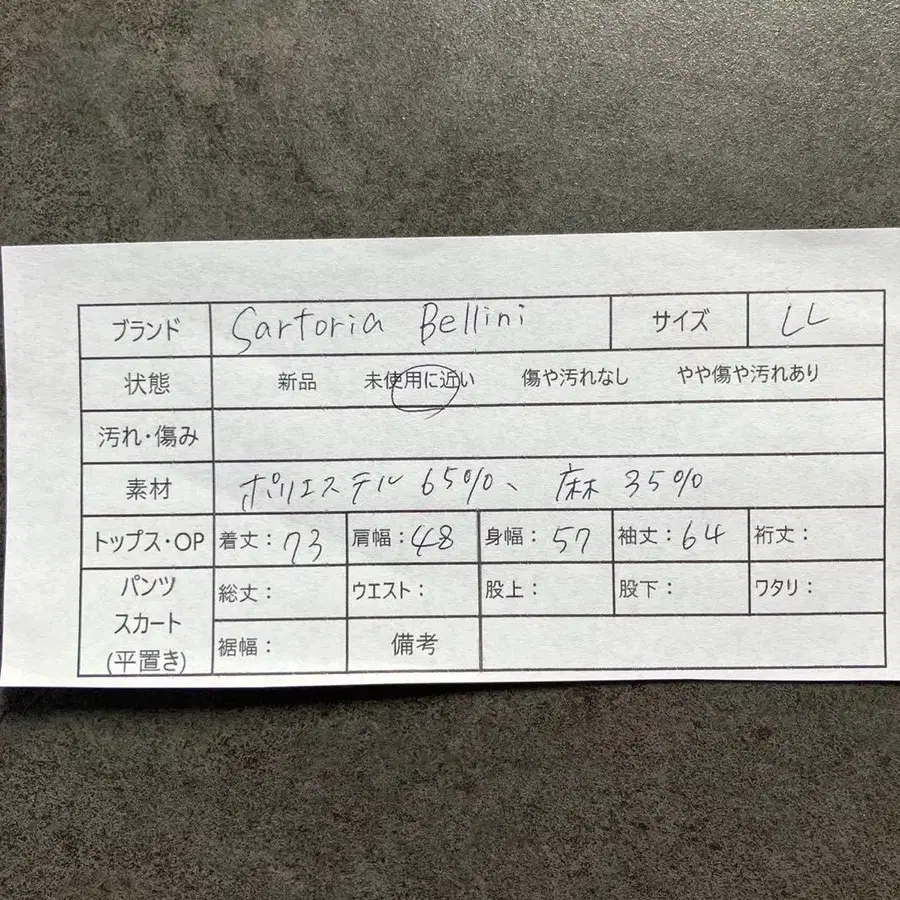 ブランド Sartoria Bellini サイズ LL
状態 新品 未使用に近い 傷や汚れなし やや傷や汚れあり
汚れ・傷み
素材 ポリエステル 65%、麻 35%
トップス・OP 着丈：73 肩幅：48 身幅：57 袖丈：64 裄丈：
パンツ 総丈： ウエスト： 股上： 股下： ワタリ：
スカート
(平置き) 裾幅： 備考